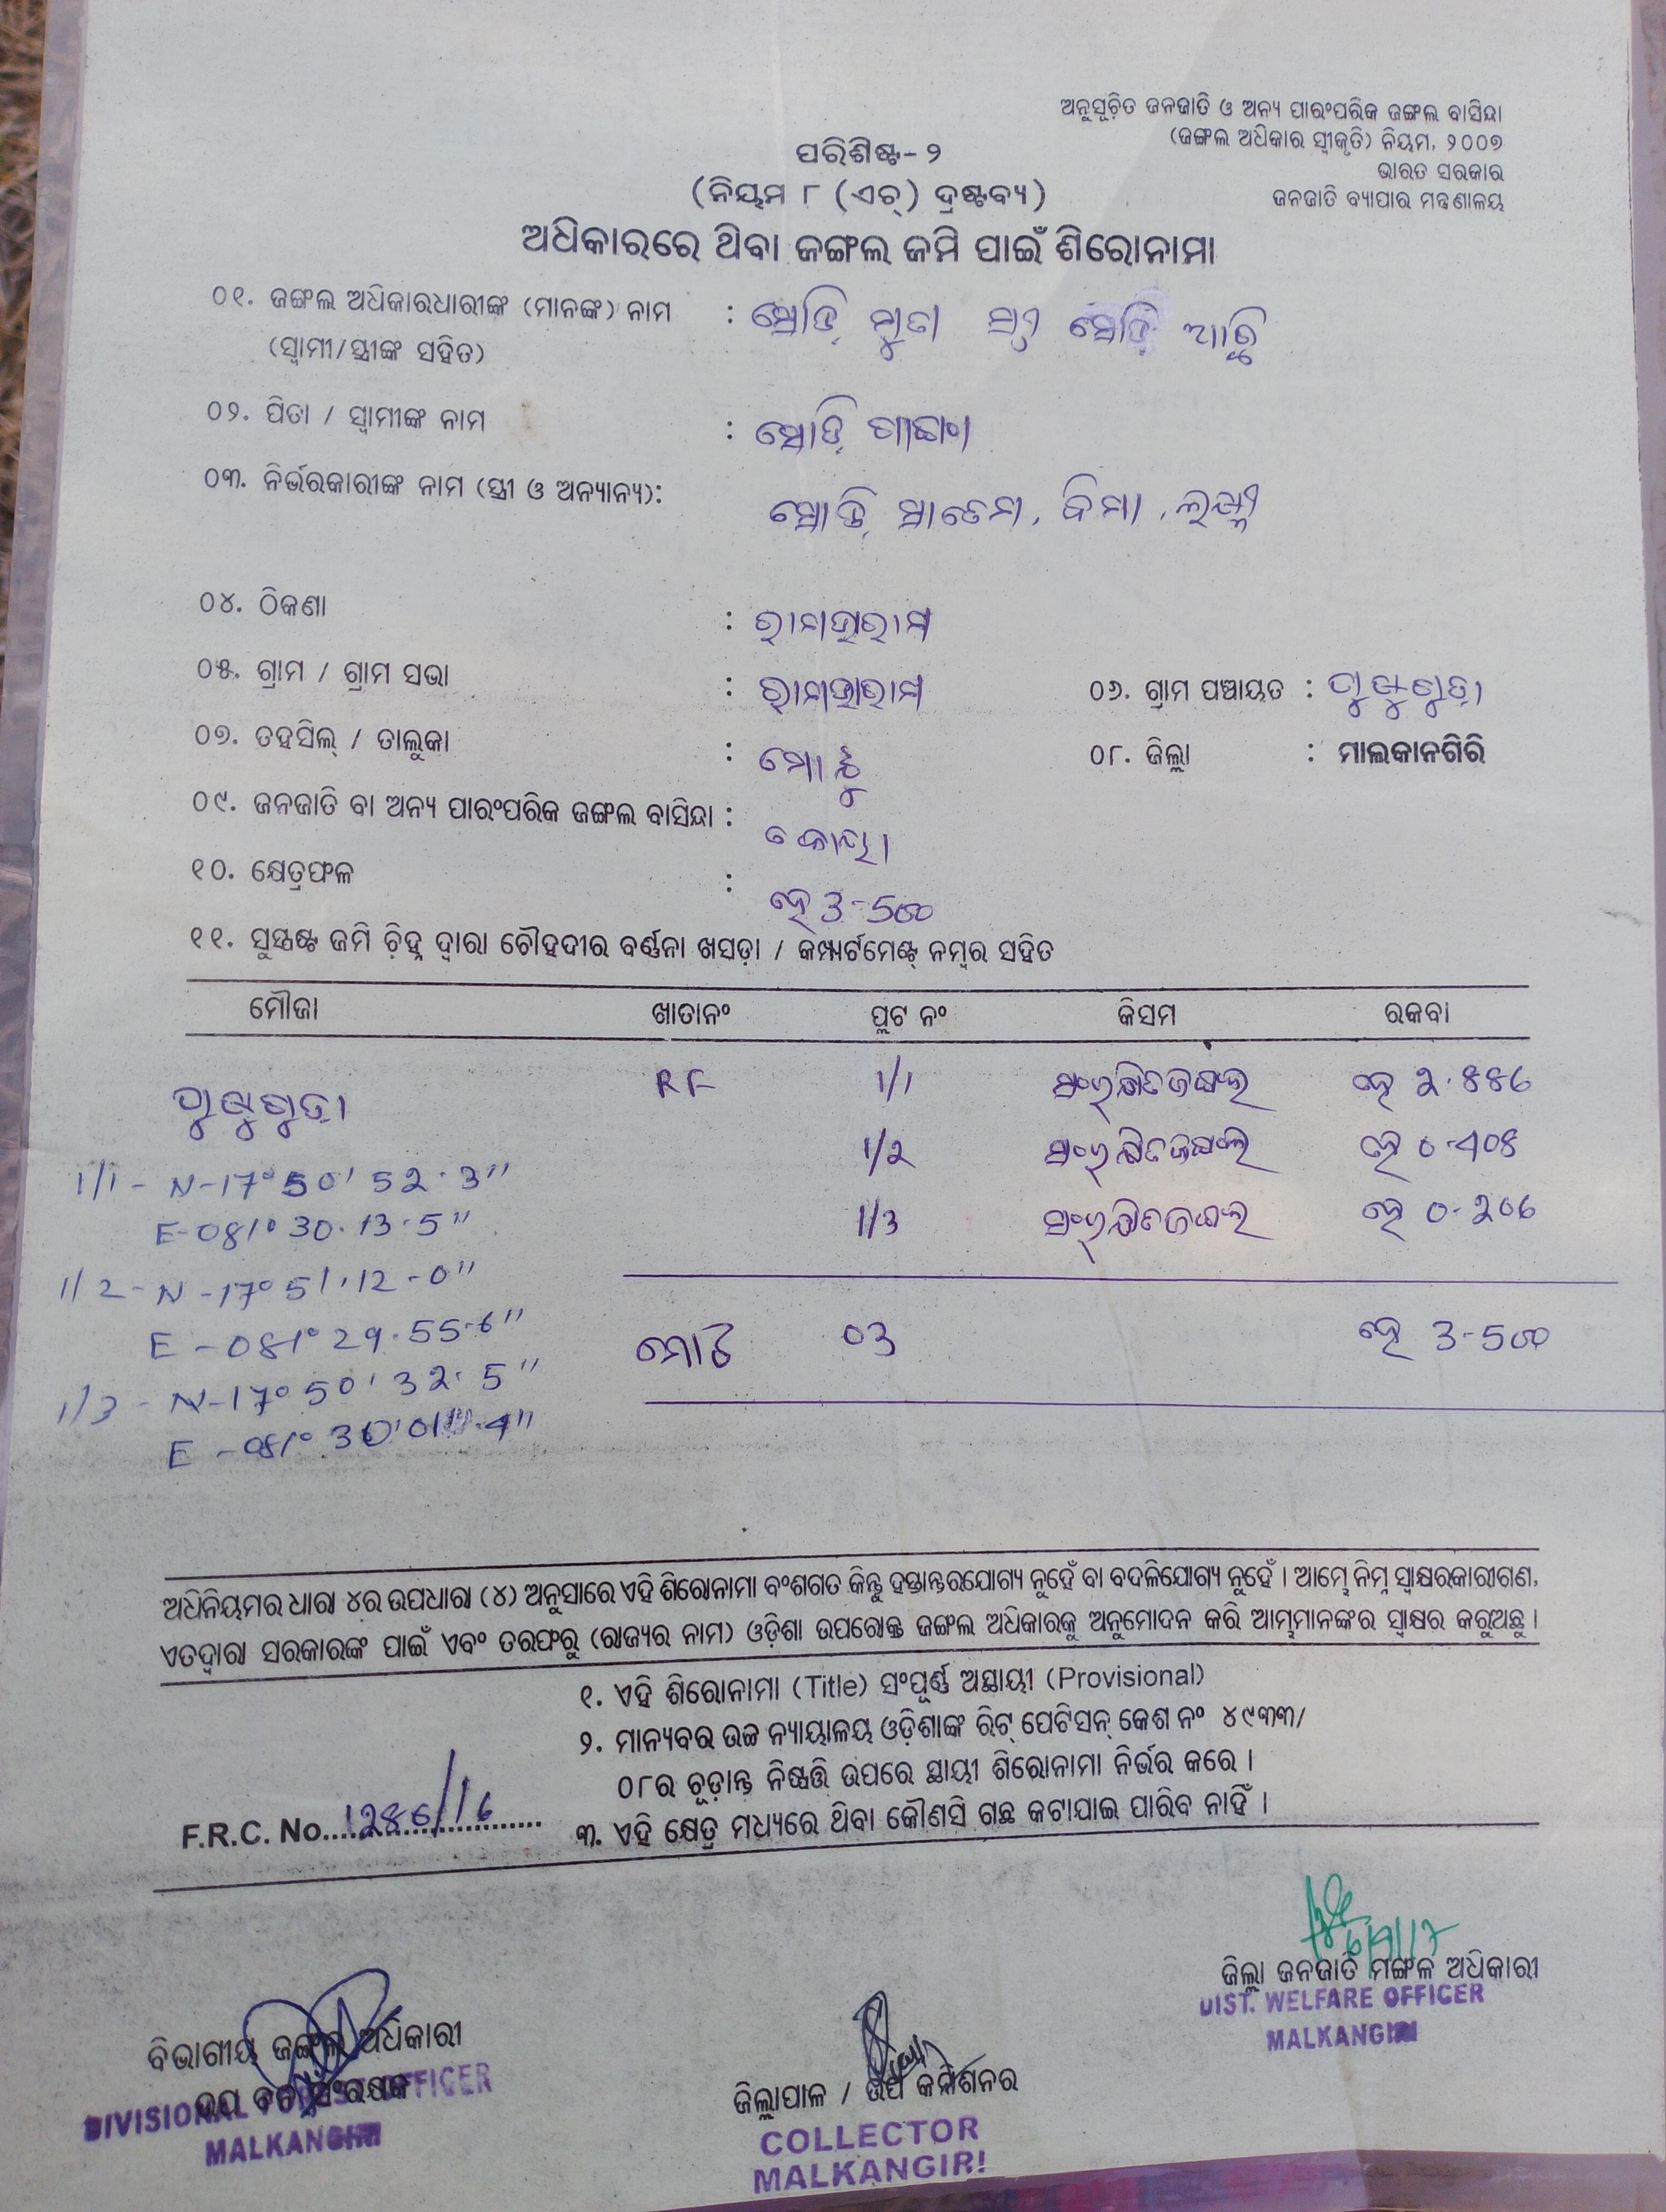 ଅନୁସୂଚିତ ଜନଜାତି ଓ ଅନ୍ୟ ପାରଂପରିକ ଜଙ୍ଗଲ ବାସିନ୍ଦା
(ଜଙ୍ଗଲ ଅଧିକାର ସ୍ୱୀକୃତି) ନିୟମ, ୨୦୦୭
ଭାରତ ସରକାର
ଜନଜାତି ବ୍ୟାପାର ମନ୍ତ୍ରଣାଳୟ
ପରିଶିଷ୍ଟ- ୨
(ନିୟମ ୮ (ଏଚ୍) ଦ୍ରଷ୍ଟବ୍ୟ)
ଅଧିକାରରେ ଥିବା ଜଙ୍ଗଲ ଜମି ପାଇଁ ଶିରୋନାମା
୦୧. ଜଙ୍ଗଲ ଅଧିକାରଧାରୀଙ୍କ (ମାନଙ୍କ) ନାମ :
(ସ୍ୱାମୀ/ସ୍ତ୍ରୀଙ୍କ ସହିତ)
୦୨. ପିତା / ସ୍ୱାମୀଙ୍କ ନାମ :
୦୩. ନିର୍ଭରକାରୀଙ୍କ ନାମ (ସ୍ତ୍ରୀ ଓ ଅନ୍ୟାନ୍ୟ):
୦୪. ଠିକଣା :
୦୫. ଗ୍ରାମ / ଗ୍ରାମ ସଭା : ୦୬. ଗ୍ରାମ ପଞ୍ଚାୟତ :
୦୭. ତହସିଲ୍ / ତାଲୁକା : ମୋଟୁ ୦୮. ଜିଲ୍ଲା : ମାଲକାନଗିରି
୦୯. ଜନଜାତି ବା ଅନ୍ୟ ପାରଂପରିକ ଜଙ୍ଗଲ ବାସିନ୍ଦା : କୋୟା
୧୦. କ୍ଷେତ୍ରଫଳ : ହେ 3-500
୧୧. ସୁସ୍ପଷ୍ଟ ଜମି ଚିହ୍ନ ଦ୍ୱାରା ଚୌହଦୀର ବର୍ଣ୍ଣନା ଖସଡ଼ା / କମ୍ପାର୍ଟମେଣ୍ଟ୍ ନମ୍ବର ସହିତ
ମୌଜା ଖାତାନଂ ପ୍ଲଟ ନଂ କିସମ ରକବା
RF 1/1 ସଂରକ୍ଷିତ ଜଙ୍ଗଲ ହେ
1/2 ସଂରକ୍ଷିତ ଜଙ୍ଗଲ ହେ
1/3 ସଂରକ୍ଷିତ ଜଙ୍ଗଲ ହେ 0-206
1/1 - N-17° 50' 52.3"
E-081° 30.13.5"
1/2 - N-17° 51'.12-0"
E-081° 29.55.6"
1/3 - N-17° 50' 32.5"
E-081° 30'
ମୋଟ 03 ହେ 3-500
ଅଧିନିୟମର ଧାରା ୪ର ଉପଧାରା (୪) ଅନୁସାରେ ଏହି ଶିରୋନାମା ବଂଶଗତ କିନ୍ତୁ ହସ୍ତାନ୍ତରଯୋଗ୍ୟ ନୁହେଁ ବା ବଦଳିଯୋଗ୍ୟ ନୁହେଁ । ଆମ୍ଭେ ନିମ୍ନ ସ୍ୱାକ୍ଷରକାରୀଗଣ,
ଏତଦ୍ୱାରା ସରକାରଙ୍କ ପାଇଁ ଏବଂ ତରଫରୁ (ରାଜ୍ୟର ନାମ) ଓଡ଼ିଶା ଉପରୋକ୍ତ ଜଙ୍ଗଲ ଅଧିକାରକୁ ଅନୁମୋଦନ କରି ଆମ୍ଭମାନଙ୍କର ସ୍ୱାକ୍ଷର କରୁଅଛୁ ।
୧. ଏହି ଶିରୋନାମା (Title) ସଂପୂର୍ଣ୍ଣ ଅସ୍ଥାୟୀ (Provisional)
୨. ମାନ୍ୟବର ଉଚ୍ଚ ନ୍ୟାୟାଳୟ ଓଡ଼ିଶାଙ୍କ ରିଟ୍ ପେଟିସନ୍ କେଶ ନଂ ୪୯୩୩/
୦୮ର ଚୂଡ଼ାନ୍ତ ନିଷ୍ପତ୍ତି ଉପରେ ସ୍ଥାୟୀ ଶିରୋନାମା ନିର୍ଭର କରେ ।
୩. ଏହି କ୍ଷେତ୍ର ମଧ୍ୟରେ ଥିବା କୌଣସି ଗଛ କଟାଯାଇ ପାରିବ ନାହିଁ ।
F.R.C. No.
ଜିଲ୍ଲା ଜନଜାତି ମଙ୍ଗଳ ଅଧିକାରୀ
DIST. WELFARE OFFICER
MALKANGIRI
ବିଭାଗୀୟ ଜଙ୍ଗଲ ଅଧିକାରୀ
ଉପ ବନ ସଂରକ୍ଷକ
DIVISIONAL FOREST OFFICER
MALKANGIRI
ଜିଲ୍ଲାପାଳ / ଉପ କମିଶନର
COLLECTOR
MALKANGIRI